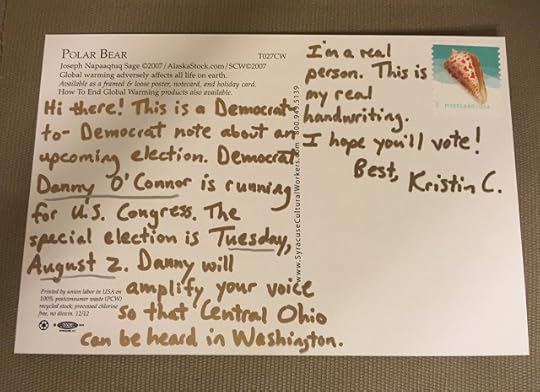 POLAR BEAR
T027CW
Joseph Napaaqtuq Sage ©2007 / AlaskaStock.com / SCW©2007
Global warming adversely affects all life on earth.
Available as a framed & loose poster, notecard, and holiday card.
How To End Global Warming products also available.
Hi there! This is a Democrat-
to-Democrat note about an
upcoming election. Democrat
Danny O'Connor is running
for U.S. Congress. The
special election is Tuesday,
August 2. Danny will
amplify your voice
so that Central Ohio
can be heard in Washington.
Printed by union labor in USA on
100% postconsumer waste (PCW)
recycled stock; processed chlorine
free, no dioxin. 12/12
www.SyracuseCulturalWorkers.com 800.949.5139
I'm a real
person. This is
my real
handwriting.
I hope you'll vote!
Best, Kristin C.
POSTCARD USA